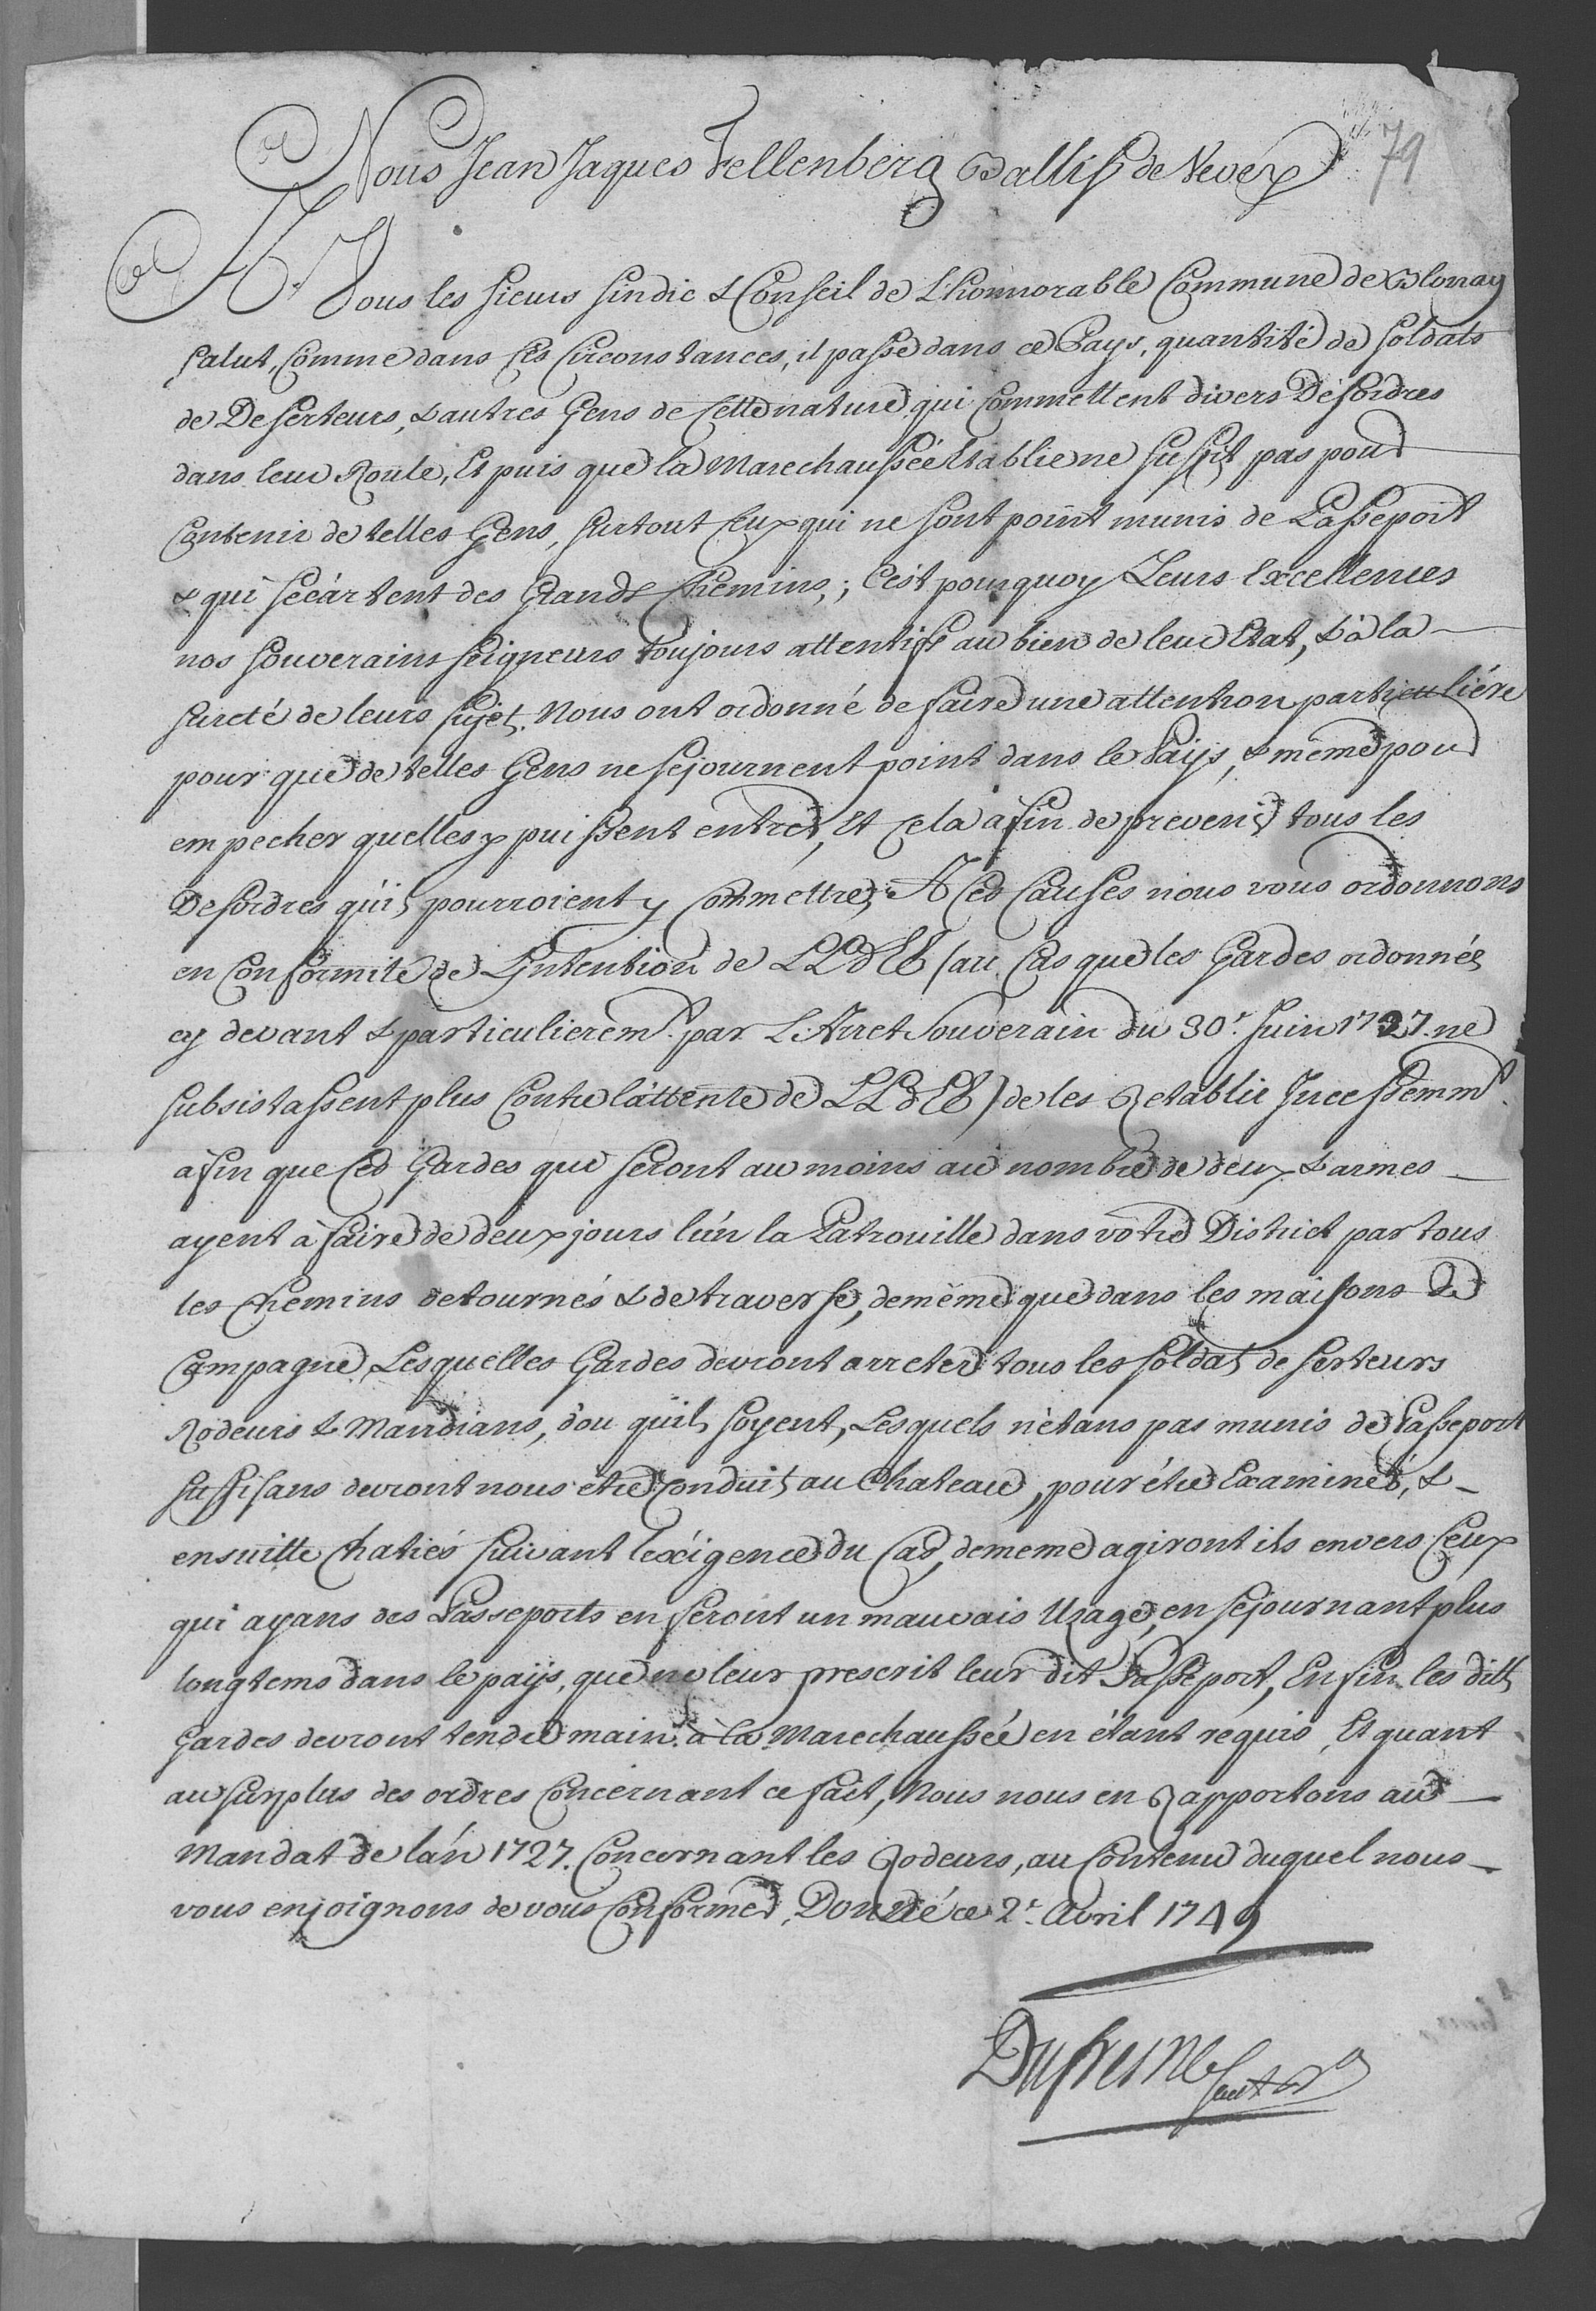 79
Nous Jean Jaques Fellenberg Ballif de Vevey
A Vous les sieurs sindic & Conseil de L'honnorable Commune de Blonay
salut, Comme dans ces Circonstances, il passe dans ce Pays, quantité de soldats
de Deserteurs, & autres Gens de Cette nature, qui Commettent divers Desordres
dans leur Route, Et puis que la Marechaussée établie ne suffit pas pour
Contenir de telles Gens, surtout Ceux qui ne sont point munis de Passeport
& qui sécartent des Grands Chemins,; C'est pourquoy Leurs Excellences
nos souverains seigneurs toujours attentifs au bien de leur Etat, & à la
sureté de leurs sujets. Nous ont ordonné de faire une attention particuliére
pour que de telles Gens ne sejournent point dans le Païs, & même pour
empecher quelles y puissent entrer, Et Cela afin de prevenir tous les
Desordres qu'ils pourroient y Commettre, A Ces Causes nous vous ordonnons
en Conformité de L'Intention de LLdEE (au Cas que les Gardes ordonnées
cy devant & particulierem.t par L'Arret Souverain du 30.e Juin 1727 ne
subsistassent plus Contre l'attente de LLdEE) de les Retablir Incessemm.t
afin que Ces Gardes qui seront au moins au nombre de deux & armes
ayent à faire de deux jours l'un la Patrouille dans votre District par tous
les Chemins detournés & de traverse, de même que dans les maisons de
Campagne, Lesquelles Gardes devront arreter tous les soldats deserteurs
Rodeurs & Mandians, d'ou qu'ils soyent, Lesquels n'etans pas munis de Passeport
suffisans devront nous être Conduits au Chateau, pour être Examinés, &
ensuitte Chatiés suivant l'exigence du Cas, de meme agiront ils envers Ceux
qui ayans des Passeports en feront un mauvais Usage, en sejournant plus
longtems dans le païs, que ne leur prescrit leur dit Passeport, Enfin les dits
Gardes devront tendre main à la Marechaussée en étant requis, Et quant
au surplus des ordres Concernant ce fait, Nous nous en Rapportons au
Mandat de l'an 1727. Concernant les Rodeurs, au Contenu duquel nous
vous enjoignons de vous Conformer, Donné ce 2.e Avril 1749
Dufresne